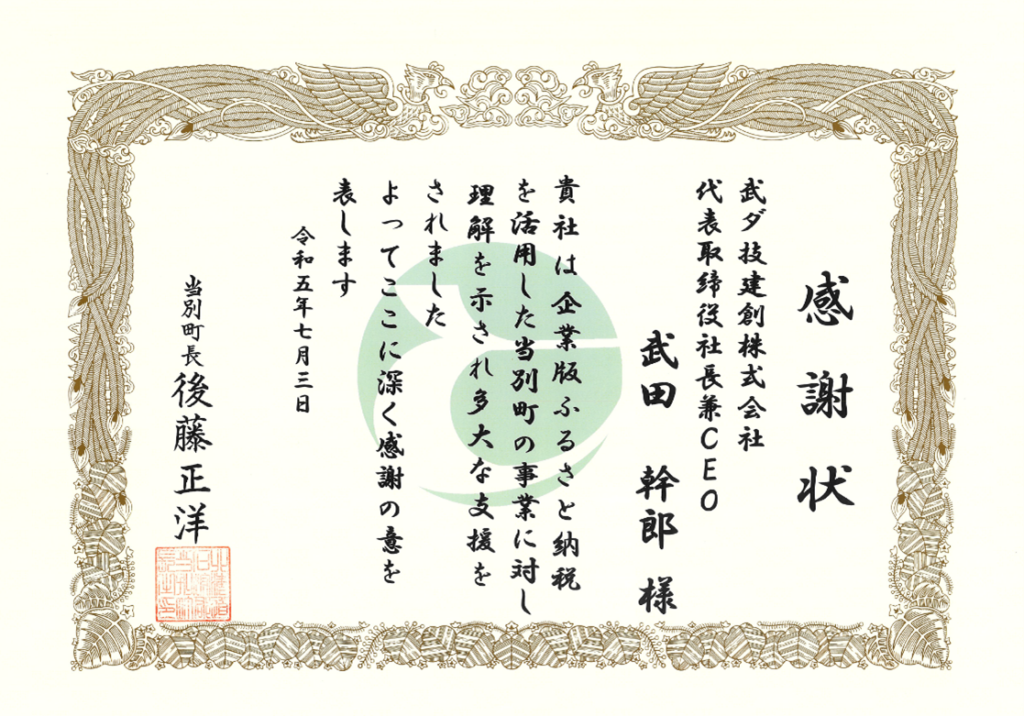 感謝状
武ダ技建創株式会社
代表取締役社長兼CEO
武田 幹郎 様
貴社は企業版ふるさと納税
を活用した当別町の事業に対し
理解を示され多大な支援を
されました
よってここに深く感謝の意を
表します
令和五年七月三日
当別町長 後藤正洋